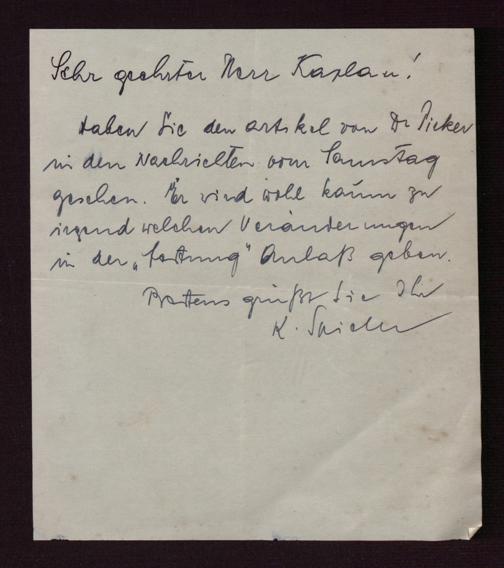 Sehr geehrter Herr Kaplan!
Haben Sie den Artikel von Dr Picker
in den Nachrichten vom Samstag
gesehen. Er wird wohl kaum zu
irgend welchen Veränderungen
in der „Festung“ Anlaß geben.
Bestens grüßt Sie Ihr
K.